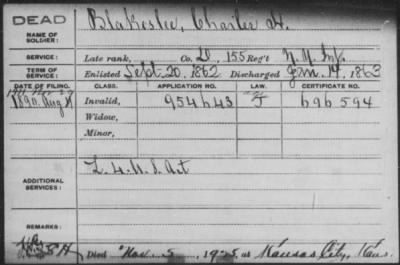 DEAD
NAME OF SOLDIER: Blakeslee, Charles H.
SERVICE: Late rank, Co. D, 155 Reg't N.Y. Inf.
TERM OF SERVICE: Enlisted Sept. 20, 1862 Discharged Jan. 14, 1863
DATE OF FILING. CLASS. APPLICATION NO. LAW. CERTIFICATE NO.
1890. Aug Invalid, 954643 J 696594
Widow,
Minor,
ADDITIONAL SERVICES: L. 4. U.S. Art
REMARKS:
Died Nov. 5, 1925, at Kansas City, Kans.